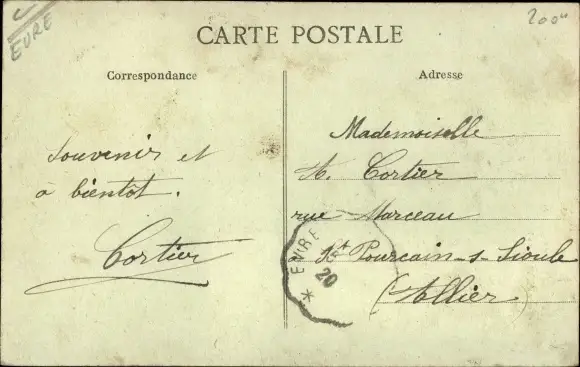 EURE
200
CARTE POSTALE
Correspondance
Adresse
Souvenir et
à bientôt.
Cortier
Mademoiselle
A. Cortier
rue Marceau
à St Pourçain-s-Sioule
(Allier)
20